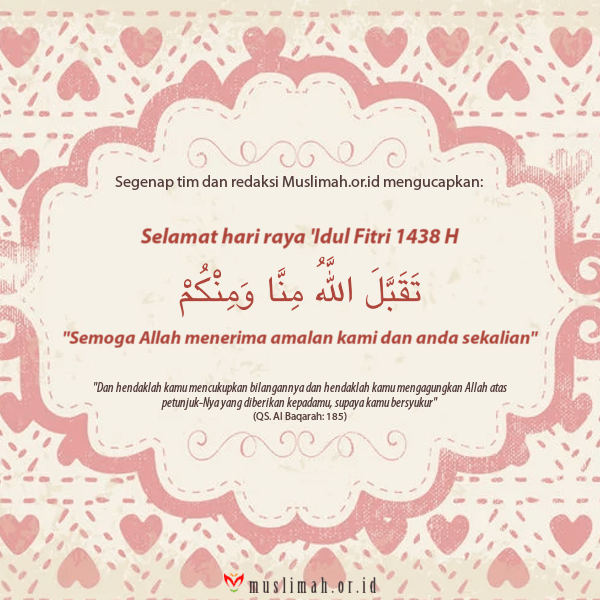 Segenap tim dan redaksi Muslimah.or.id mengucapkan:
Selamat hari raya 'Idul Fitri 1438 H
تَقَبَّلَ اللَّهُ مِنَّا وَمِنْكُمْ
"Semoga Allah menerima amalan kami dan anda sekalian"
"Dan hendaklah kamu mencukupkan bilangannya dan hendaklah kamu mengagungkan Allah atas
petunjuk-Nya yang diberikan kepadamu, supaya kamu bersyukur"
(QS. Al Baqarah: 185)
muslimah.or.id